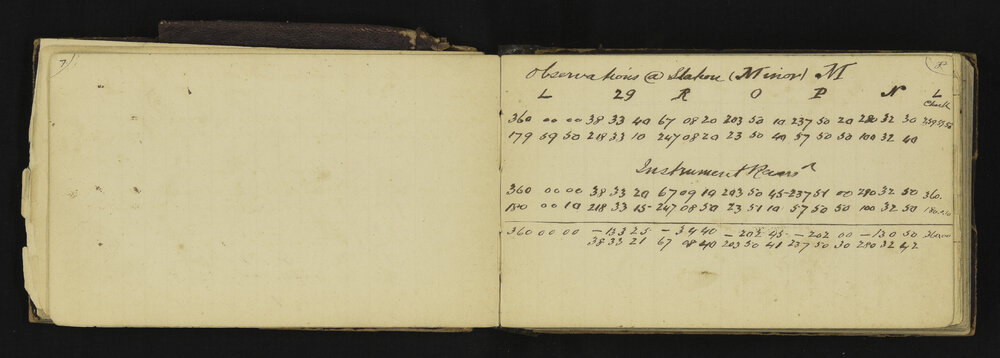 7
8
Observations @ Station (Minor) M
L 29 R O P N L
Check
360 00 00 38 33 40 67 08 20 203 50 10 237 50 20 280 32 30 359 59 50
179 59 50 218 33 10 247 08 20 23 50 40 57 50 50 100 32 40
Instrument
360 00 00 38 33 20 67 09 10 203 50 45 237 51 00 280 32 50 360
180 00 10 218 33 15 247 08 50 23 51 10 57 50 50 100 32 50
360 00 00 – 133 25 – 34 40 – 202 45 – 202 00 – 130 50 360 00
38 33 21 67 08 40 203 50 41 237 50 30 280 32 42